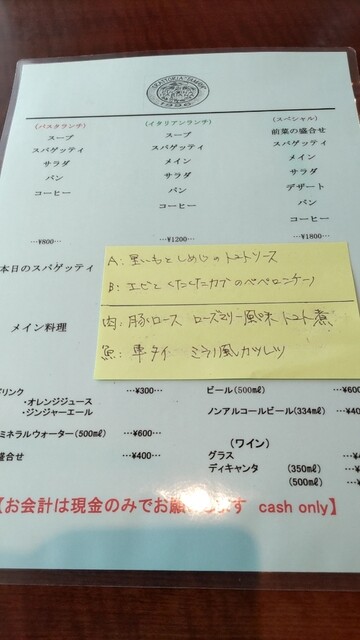 TRATTORIA
1986
(パスタランチ)
スープ
スパゲッティ
サラダ
パン
コーヒー
…¥800…
(イタリアンランチ)
スープ
スパゲッティ
メイン
サラダ
パン
コーヒー
…¥1200…
(スペシャル)
前菜の盛合せ
スパゲッティ
メイン
サラダ
デザート
パン
コーヒー
…¥1800…
本日のスパゲッティ
A: 里いもとしめじのトマトソース
B: エビとくたくたカブのペペロンチーノ
メイン料理
肉: 豚ロース ローズマリー風味 トマト煮
魚: 車タイ ミラノ風カツレツ
リンク …¥300…
・オレンジジュース
・ジンジャーエール
ミネラルウォーター(500㎖) …¥600…
盛合せ …¥400…
ビール(500㎖) …¥600
ノンアルコールビール(334㎖) …¥40
(ワイン)
グラス …¥4
ディキャンタ (350㎖) …¥
(500㎖) …¥
【お会計は現金のみでお願 します cash only】